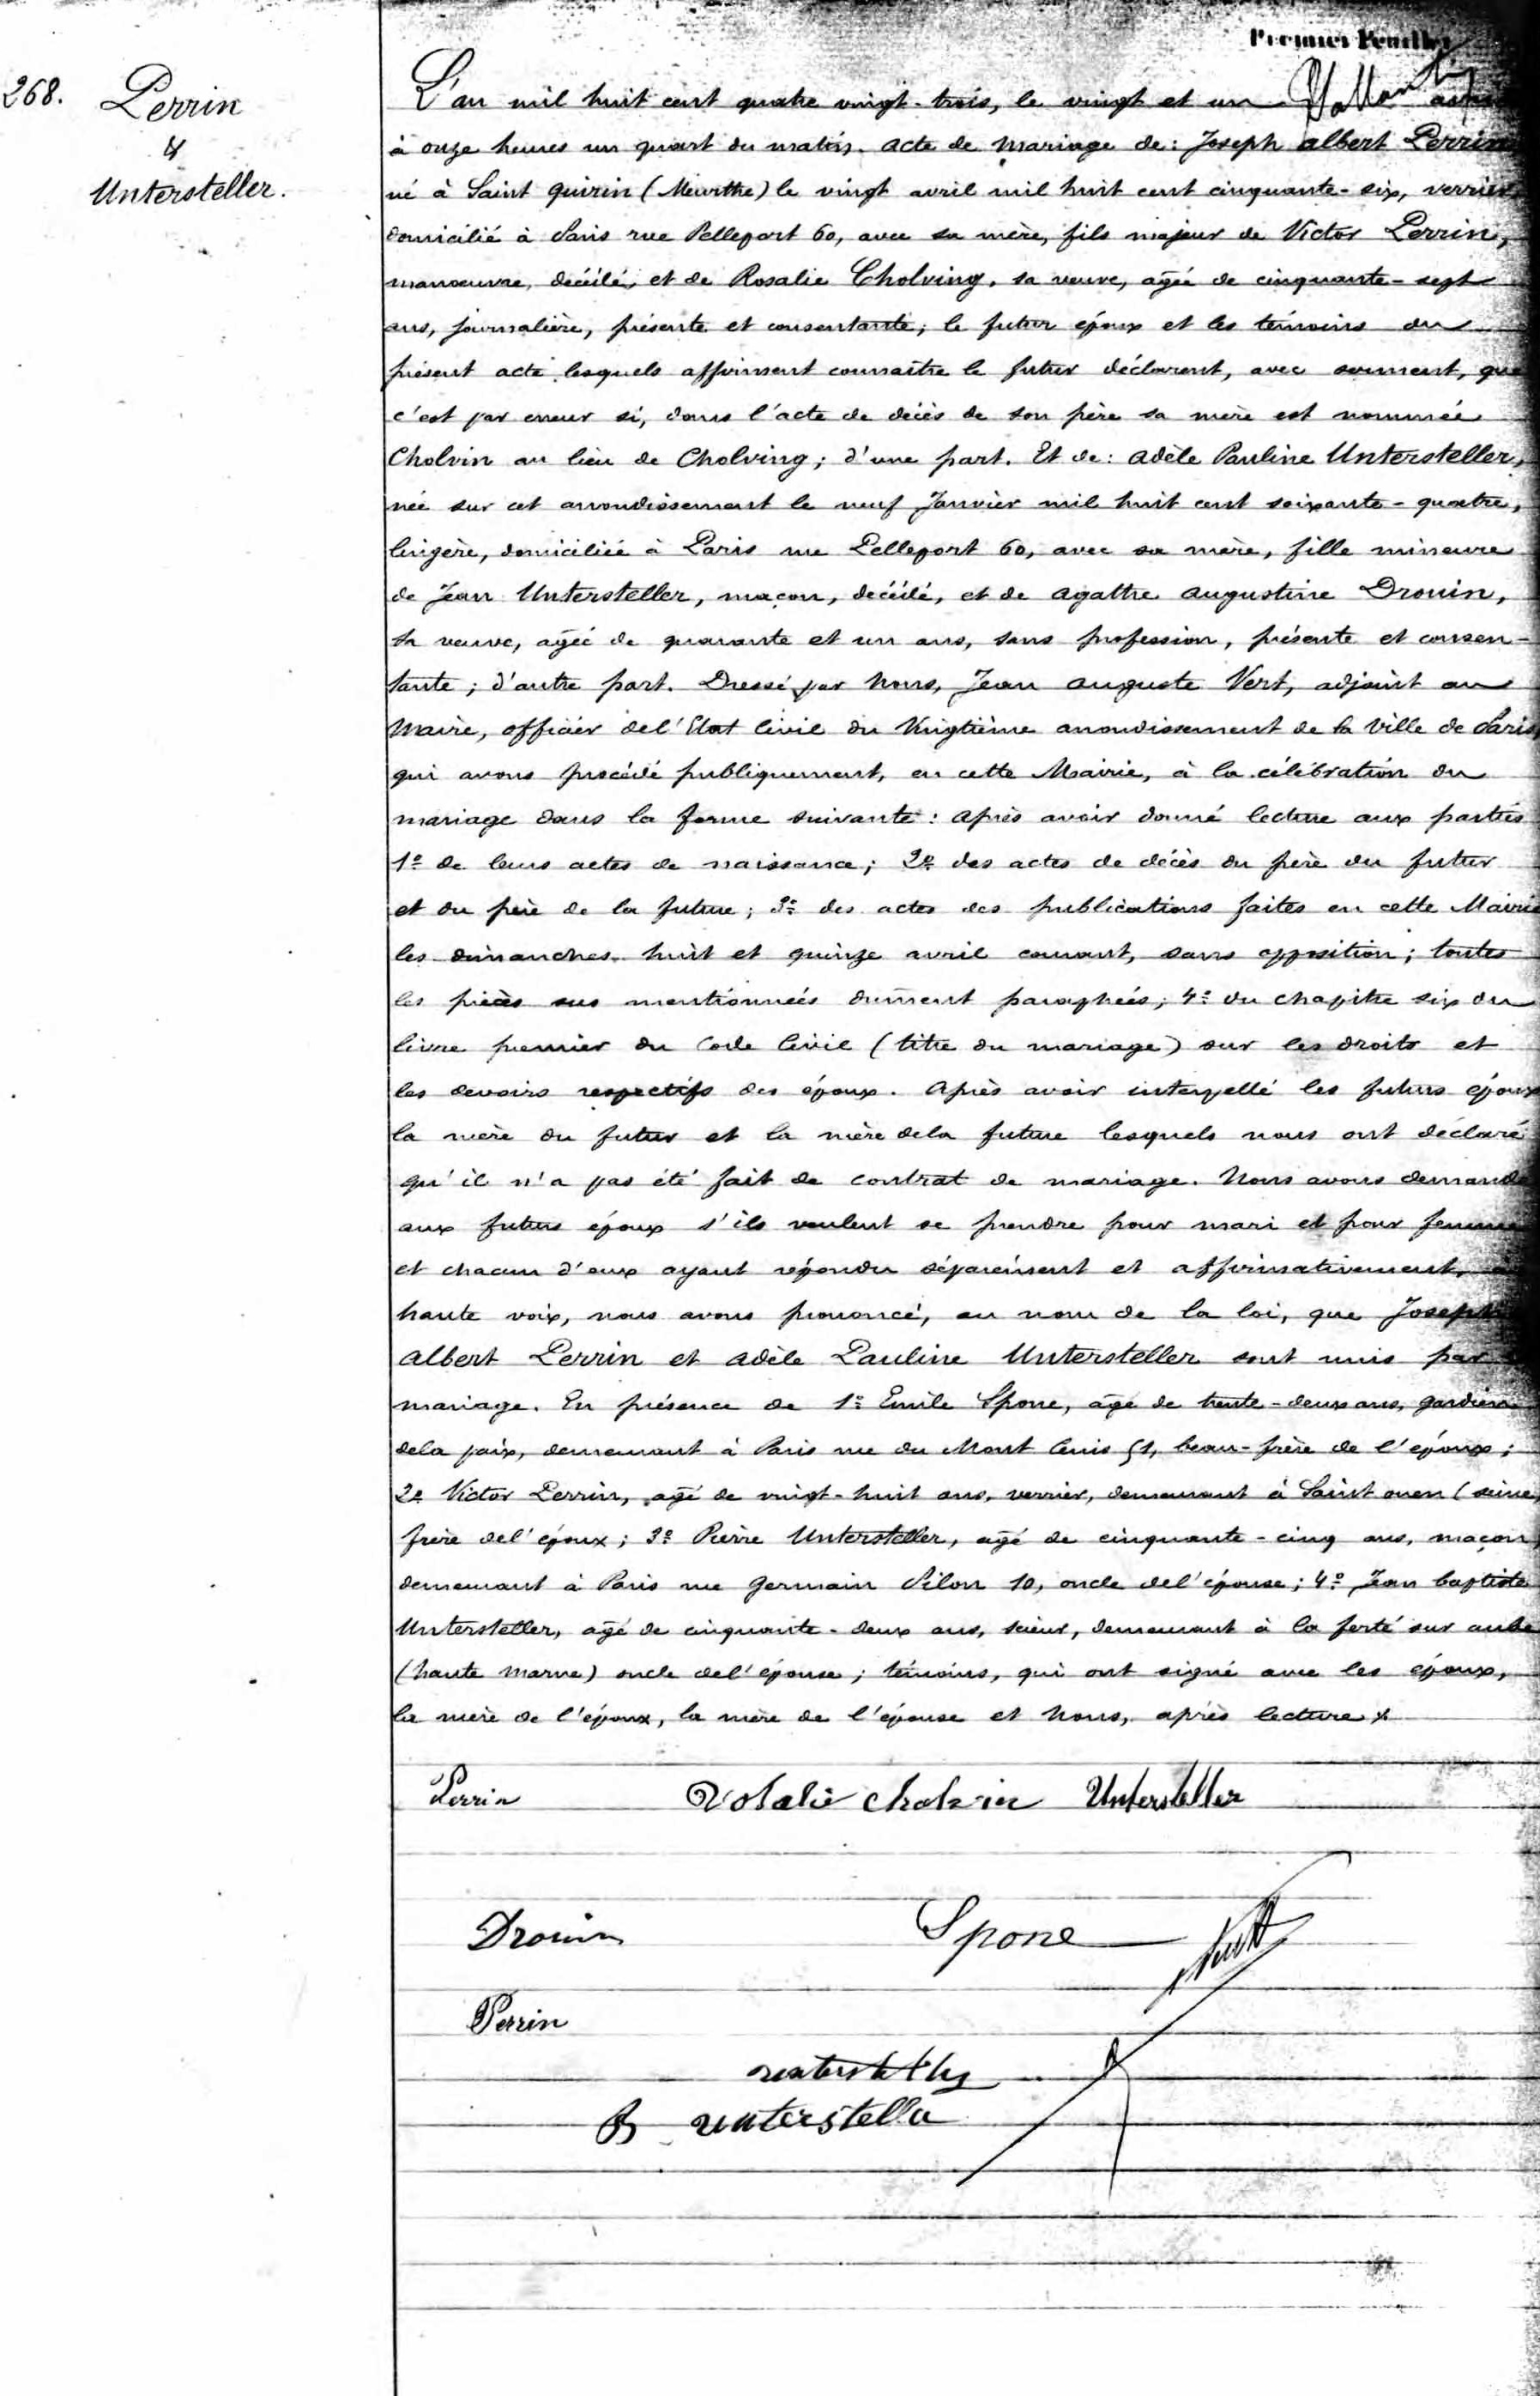 Premier Feuillet
268. Perrin
&
Untersteller.
L'an mil huit cent quatre vingt-trois, le vingt et un
à onze heures un quart du matin. acte de mariage de: Joseph albert Perrin
né à Saint Quirin (Meurthe) le vingt avril mil huit cent cinquante-six, verrier,
domicilié à Paris rue Pelleport 60, avec sa mère, fils majeur de Victor Perrin,
manoeuvre, décédé, et de Rosalie Cholving, sa veuve, agée de cinquante-sept
ans, journalière, présente et consentante; le futur époux et les témoins du
présent acte lesquels affirment connaître le futur déclarent, avec serment, que
c'est par erreur si, dans l'acte de décès de son père sa mère est nommée
Cholvin au lieu de Cholving; d'une part. Et de: adèle Pauline Untersteller,
née sur cet arrondissement le neuf Janvier mil huit cent soixante-quatre,
lingère, domiciliée à Paris rue Pelleport 60, avec sa mère, fille mineure
de Jean Untersteller, maçon, décédé, et de agathe augustine Drouin,
sa veuve, agée de quarante et un ans, sans profession, présente et consen-
tante; d'autre part. Dressé par Nous, Jean auguste Vert, adjoint au
Maire, officier de l'Etat Civil du Vingtième arrondissement de la Ville de Paris,
qui avons procédé publiquement, en cette Mairie, à la célébration du
mariage dans la forme suivante: après avoir donné lecture aux parties
1º de leurs actes de naissance; 2º des actes de décès du père du futur
et du père de la future; 3º des actes des publications faites en cette Mairie
les dimanches huit et quinze avril courant, sans opposition; toutes
les pièces sus mentionnées dûment paraphées; 4º du chapitre six du
livre premier du Code Civil (titre du mariage) sur les droits et
les devoirs respectifs des époux. Après avoir interpellé les futurs époux
la mère du futur et la mère dela future lesquels nous ont déclaré
qu'il n'a pas été fait de contrat de mariage. Nous avons demandé
aux futurs époux s'ils veulent se prendre pour mari et pour femme
et chacun d'eux ayant répondu séparément et affirmativement, à
haute voix, nous avons prononcé, au nom de la loi, que Joseph
albert Perrin et adèle Pauline Untersteller sont unis par
mariage. En présence de 1º Emile Spone, agé de trente-deux ans, gardien
dela paix, demeurant à Paris rue du Mont Cenis 51, beau-frère de l'époux;
2º Victor Perrin, agé de vingt-huit ans, verrier, demeurant à Saint ouen (seine)
frère del'époux; 3º Pierre Untersteller, agé de cinquante-cinq ans, maçon,
demeurant à Paris rue Germain Pilon 10, oncle del'épouse; 4º Jean baptiste
Untersteller, agé de cinquante-deux ans, scieur, demeurant à la ferté sur aube
(haute marne) oncle del'épouse; témoins, qui ont signé avec les époux,
la mère de l'époux, la mère de l'épouse et Nous, après lecture
Perrin Rosalie cholvin Untersteller
Drouin Spone Vert
Perrin
untersteller
B untersteller